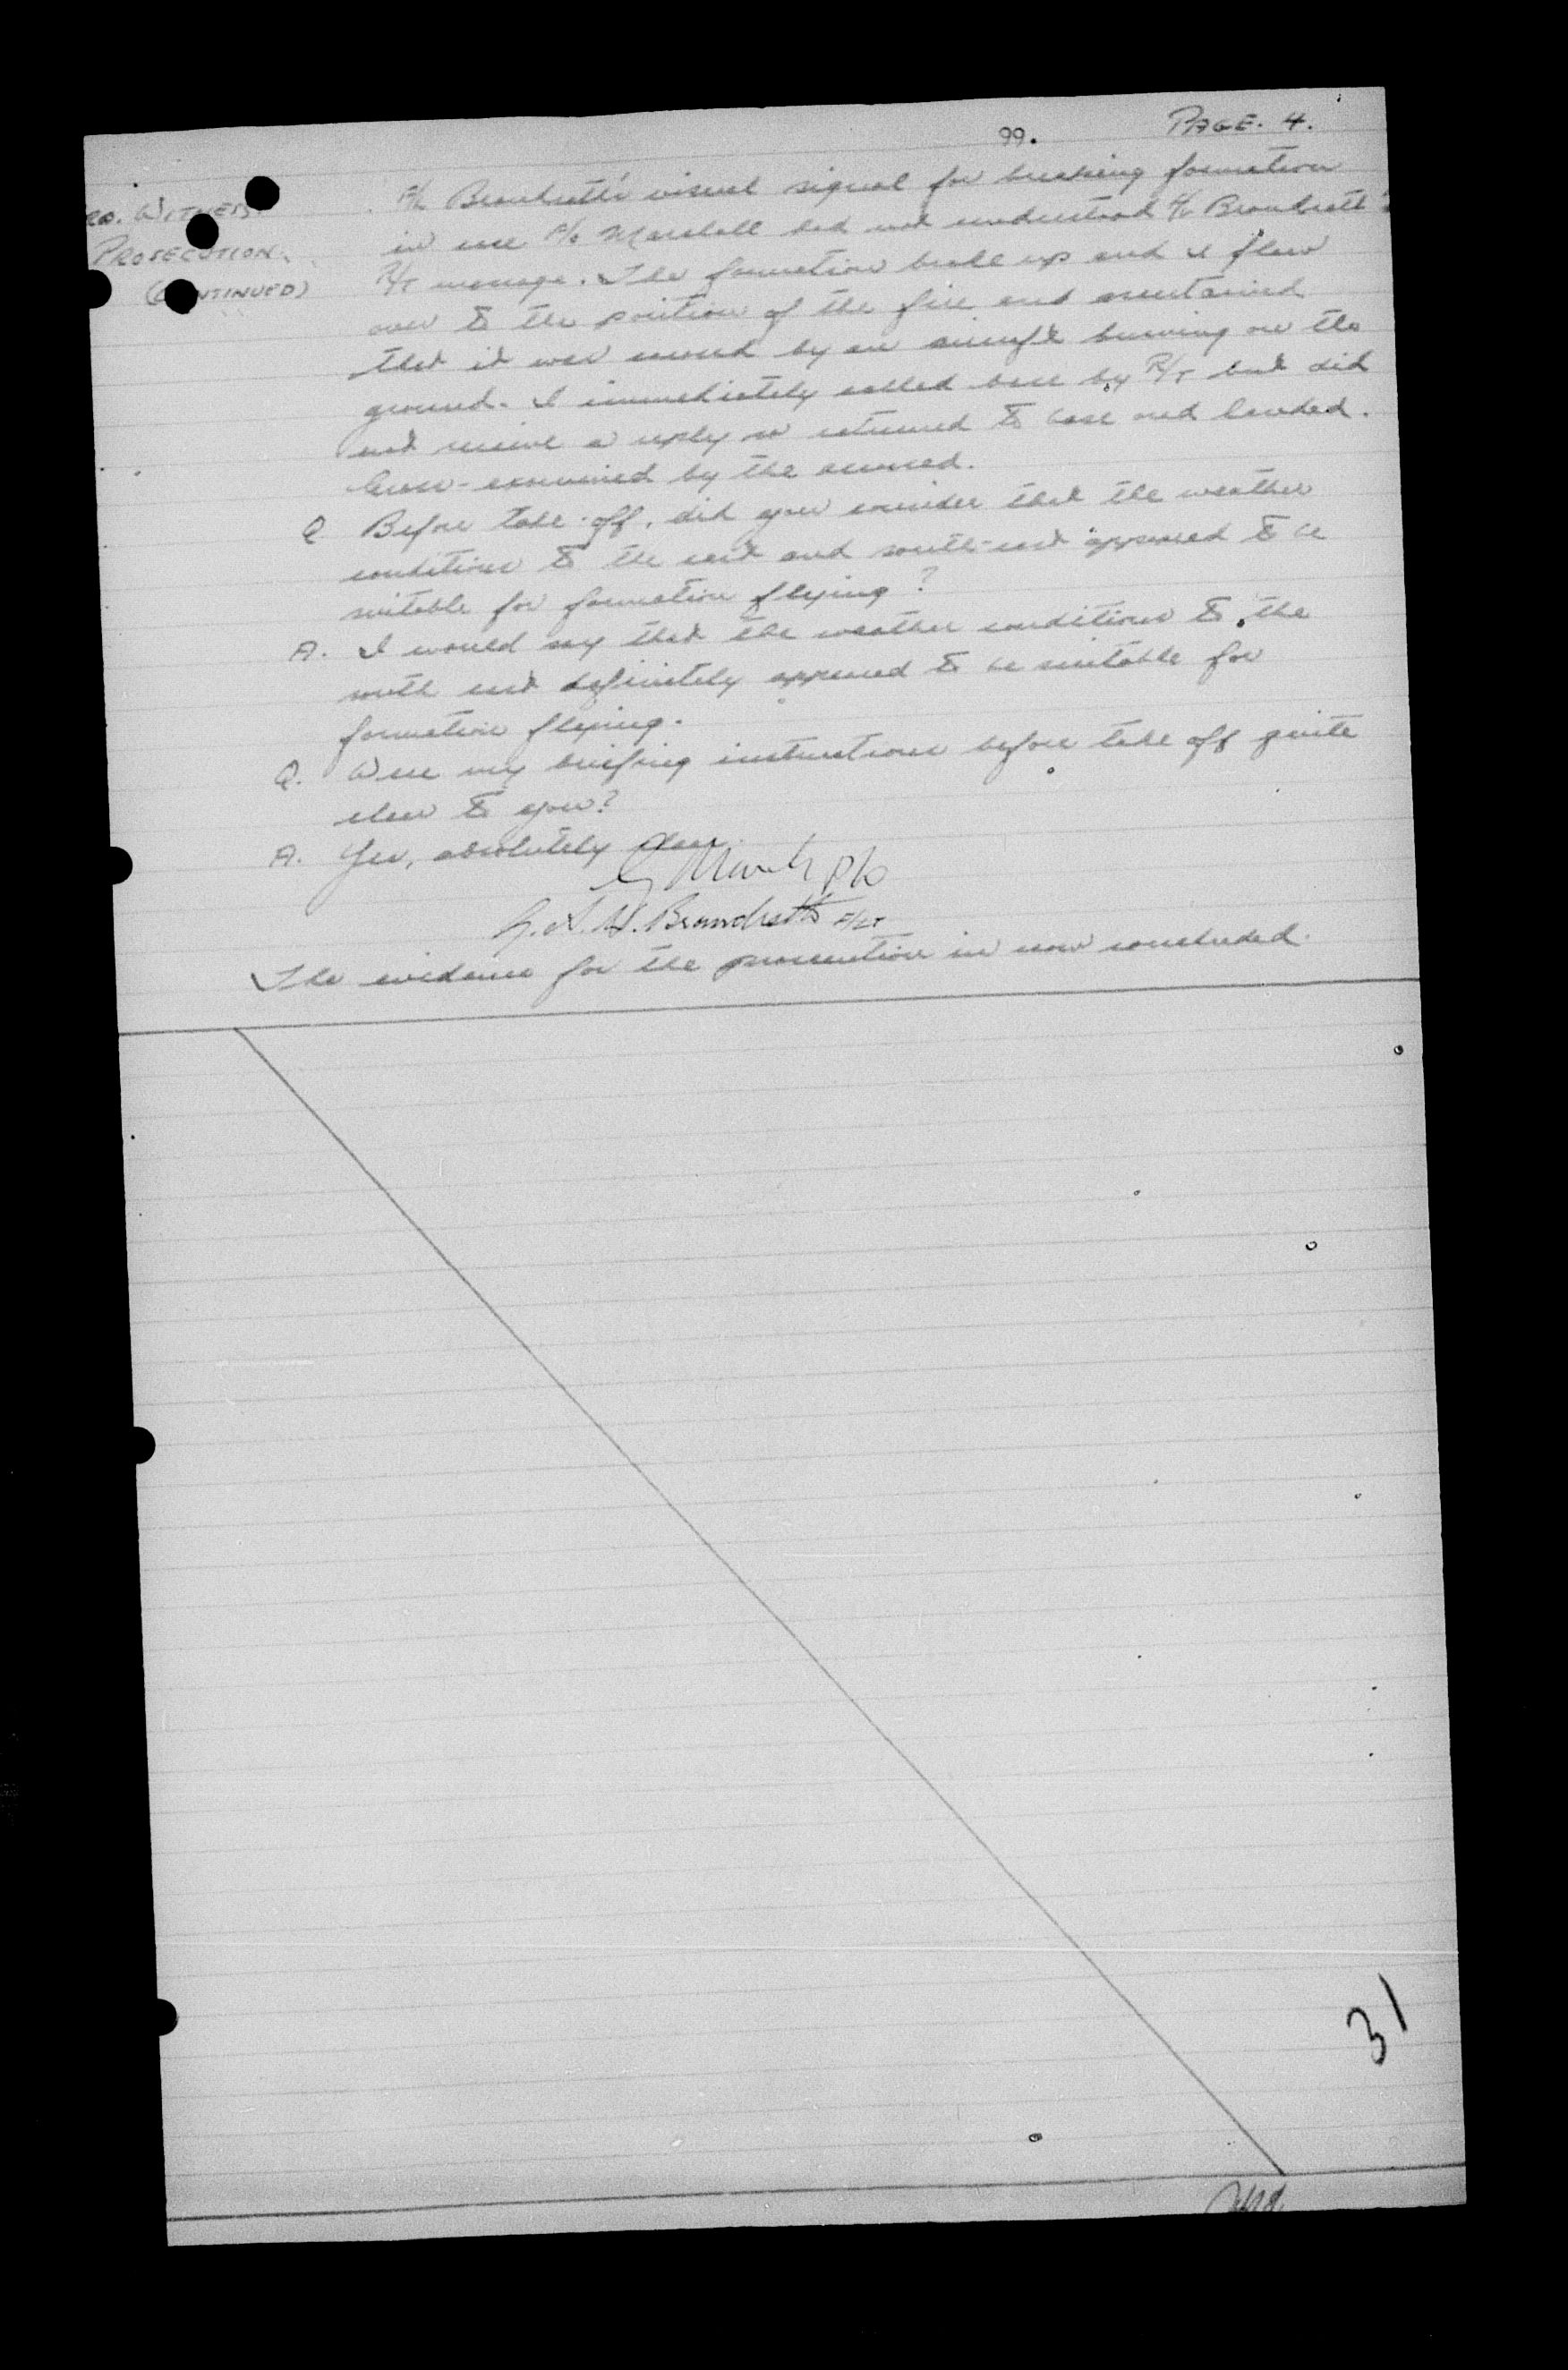 99.
PAGE. 4.
RD. WITNESS.
PROSECUTION.
(CONTINUED)
F/L Brandreth's visual signal for breaking formation
in case P/O Marshall had not understood F/L Brandreth's
R/T message. The formation broke up and I flew
over to the position of the fire and ascertained
that it was caused by an aircraft burning on the
ground. I immediately called base by R/T but did
not receive a reply so returned to base and landed.
Cross-examined by the accused.
Q Before take-off, did you consider that the weather
conditions to the east and south-east appeared to be
suitable for formation flying?
A. I would say that the weather conditions to the
south east definitely appeared to be suitable for
formation flying.
Q. Were my briefing instructions before take off quite
clear to you?
A. Yes, absolutely clear.
P/O
Brandreth F/LT
The evidence for the prosecution is now concluded.
31